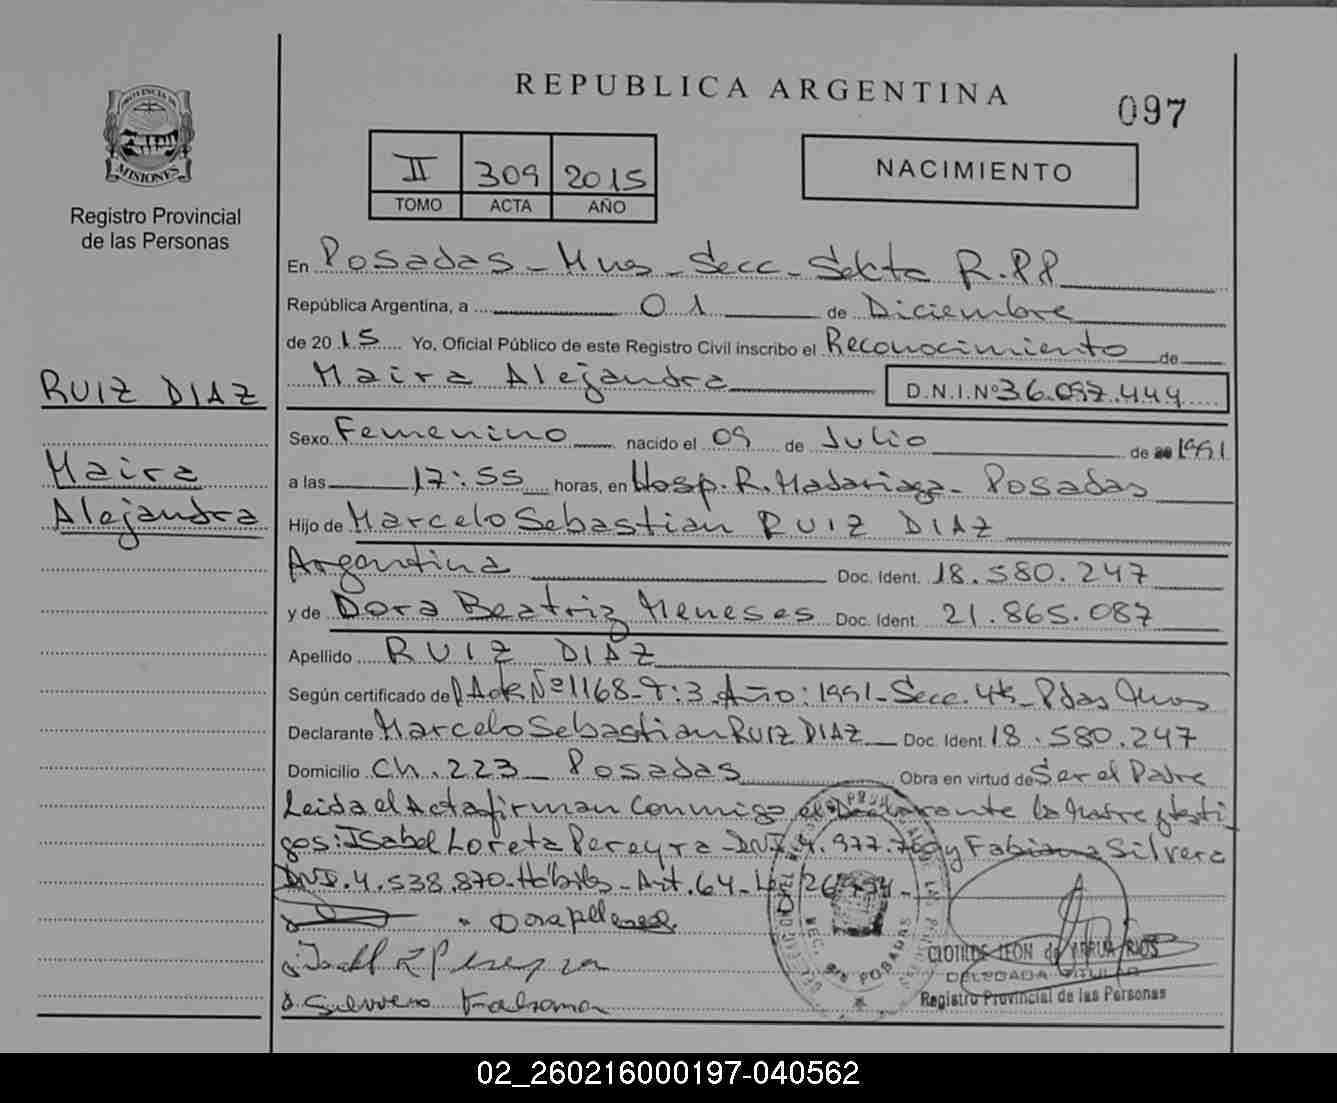 PROVINCIA DE
MISIONES
Registro Provincial
de las Personas
RUIZ DIAZ
Maira
Alejandra
REPUBLICA ARGENTINA
097
II 309 2015
TOMO ACTA AÑO
NACIMIENTO
En Posadas - Mnes - Secc - Sexta R.P.P
República Argentina, a 01 de Diciembre
de 2015 Yo, Oficial Público de este Registro Civil inscribo el Reconocimiento de
Maira Alejandra D.N.I.Nº 36.097.444
Sexo Femenino nacido el 09 de Julio de 1991
a las 17:55 horas, en Hosp. R. Madariaga - Posadas
Hijo de Marcelo Sebastian RUIZ DIAZ
Argentina Doc. Ident. 18.580.247
y de Dora Beatriz Meneses Doc. Ident. 21.865.087
Apellido RUIZ DIAZ
Según certificado de Nº 1168 - T:3. Año: 1991 - Secc. 4ta - Pdas Mnes
Declarante Marcelo Sebastian RUIZ DIAZ Doc. Ident. 18.580.247
Domicilio Ch. 223 - Posadas Obra en virtud de Ser el Padre
Leida el Acta firman Conmigo el Declarante la Madre y testi-
gos: Isabel Loreta Pereyra - DNI 4.977. y Fabiana Silvero
DNI. 4.538.870 - Hábiles - Art. 64 - 
POSADAS
CLOTILDE LEON de
DELEGADA TITULAR
Registro Provincial de las Personas
Silvero Fabiana
02_260216000197-040562